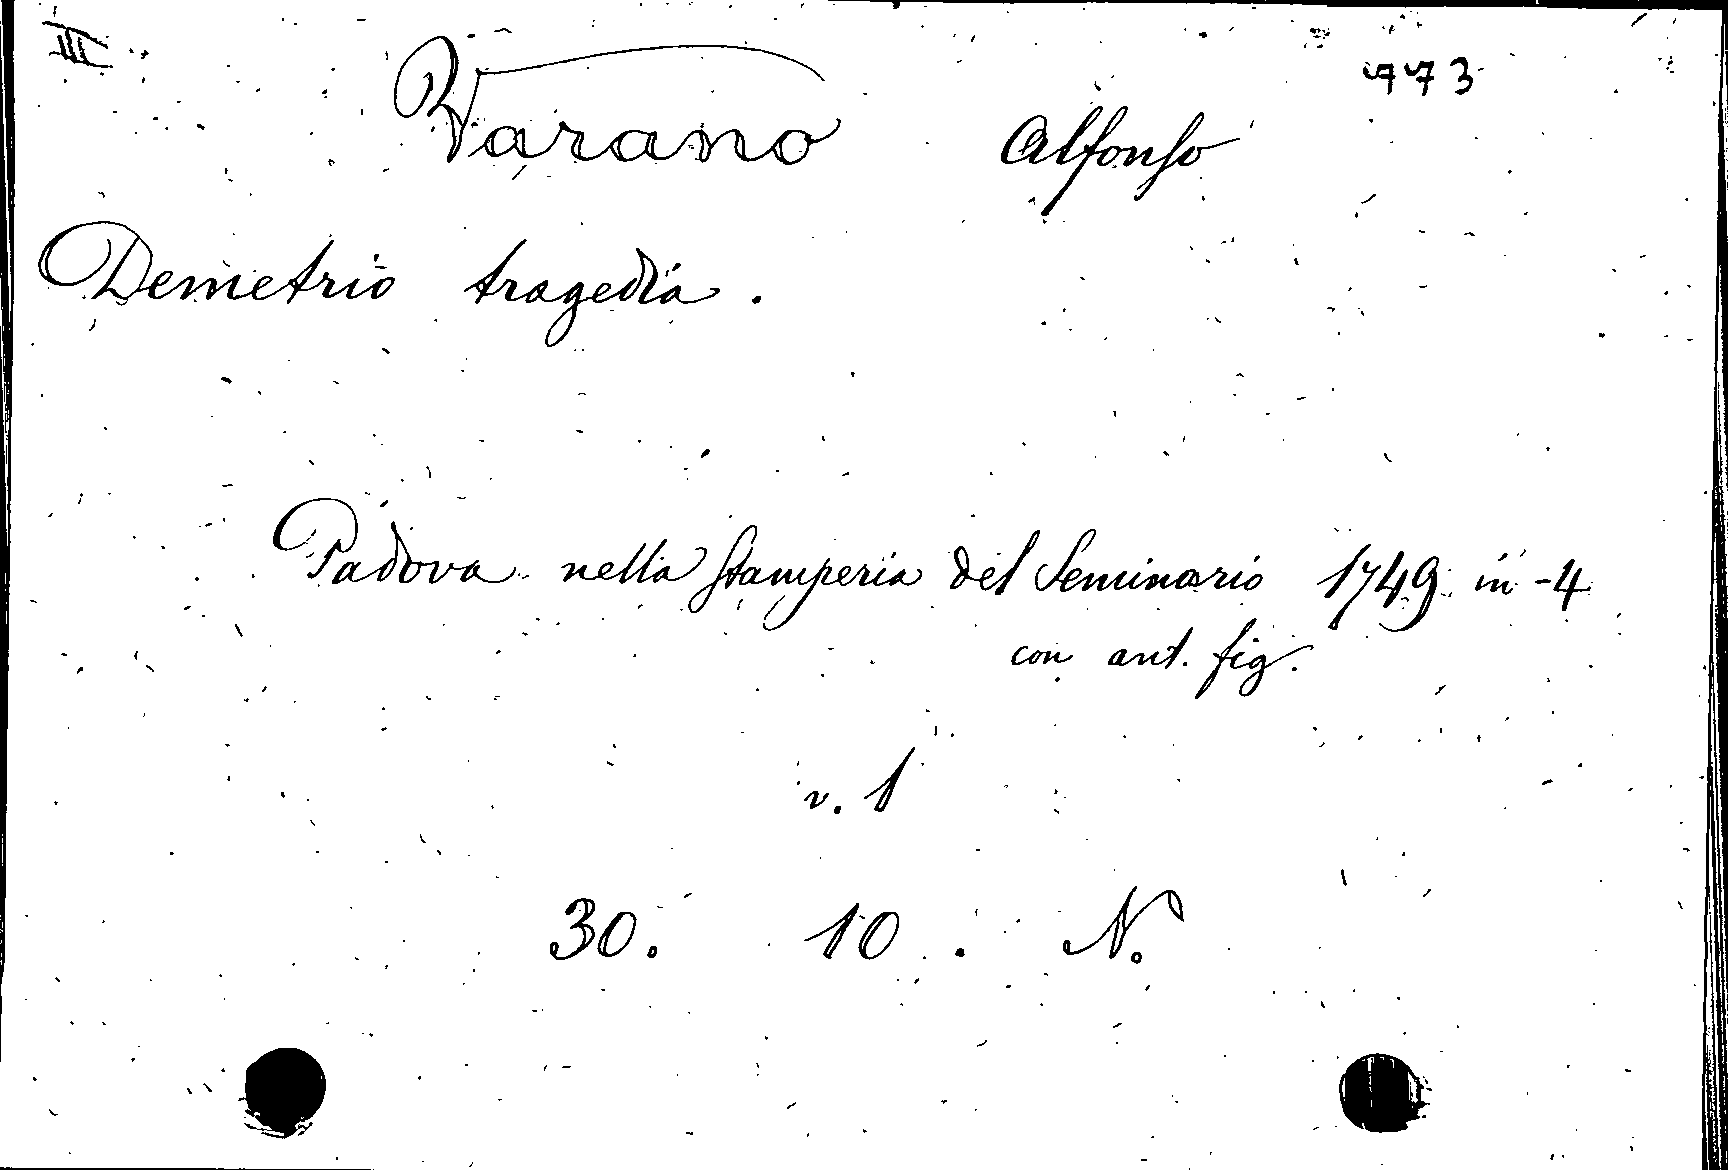 III
773
Varano Alfonso
Demetrio tragedia.
Padova nella stamperia del Seminario 1749 in-4
con ant. fig.
v. 1
30. 10. N.